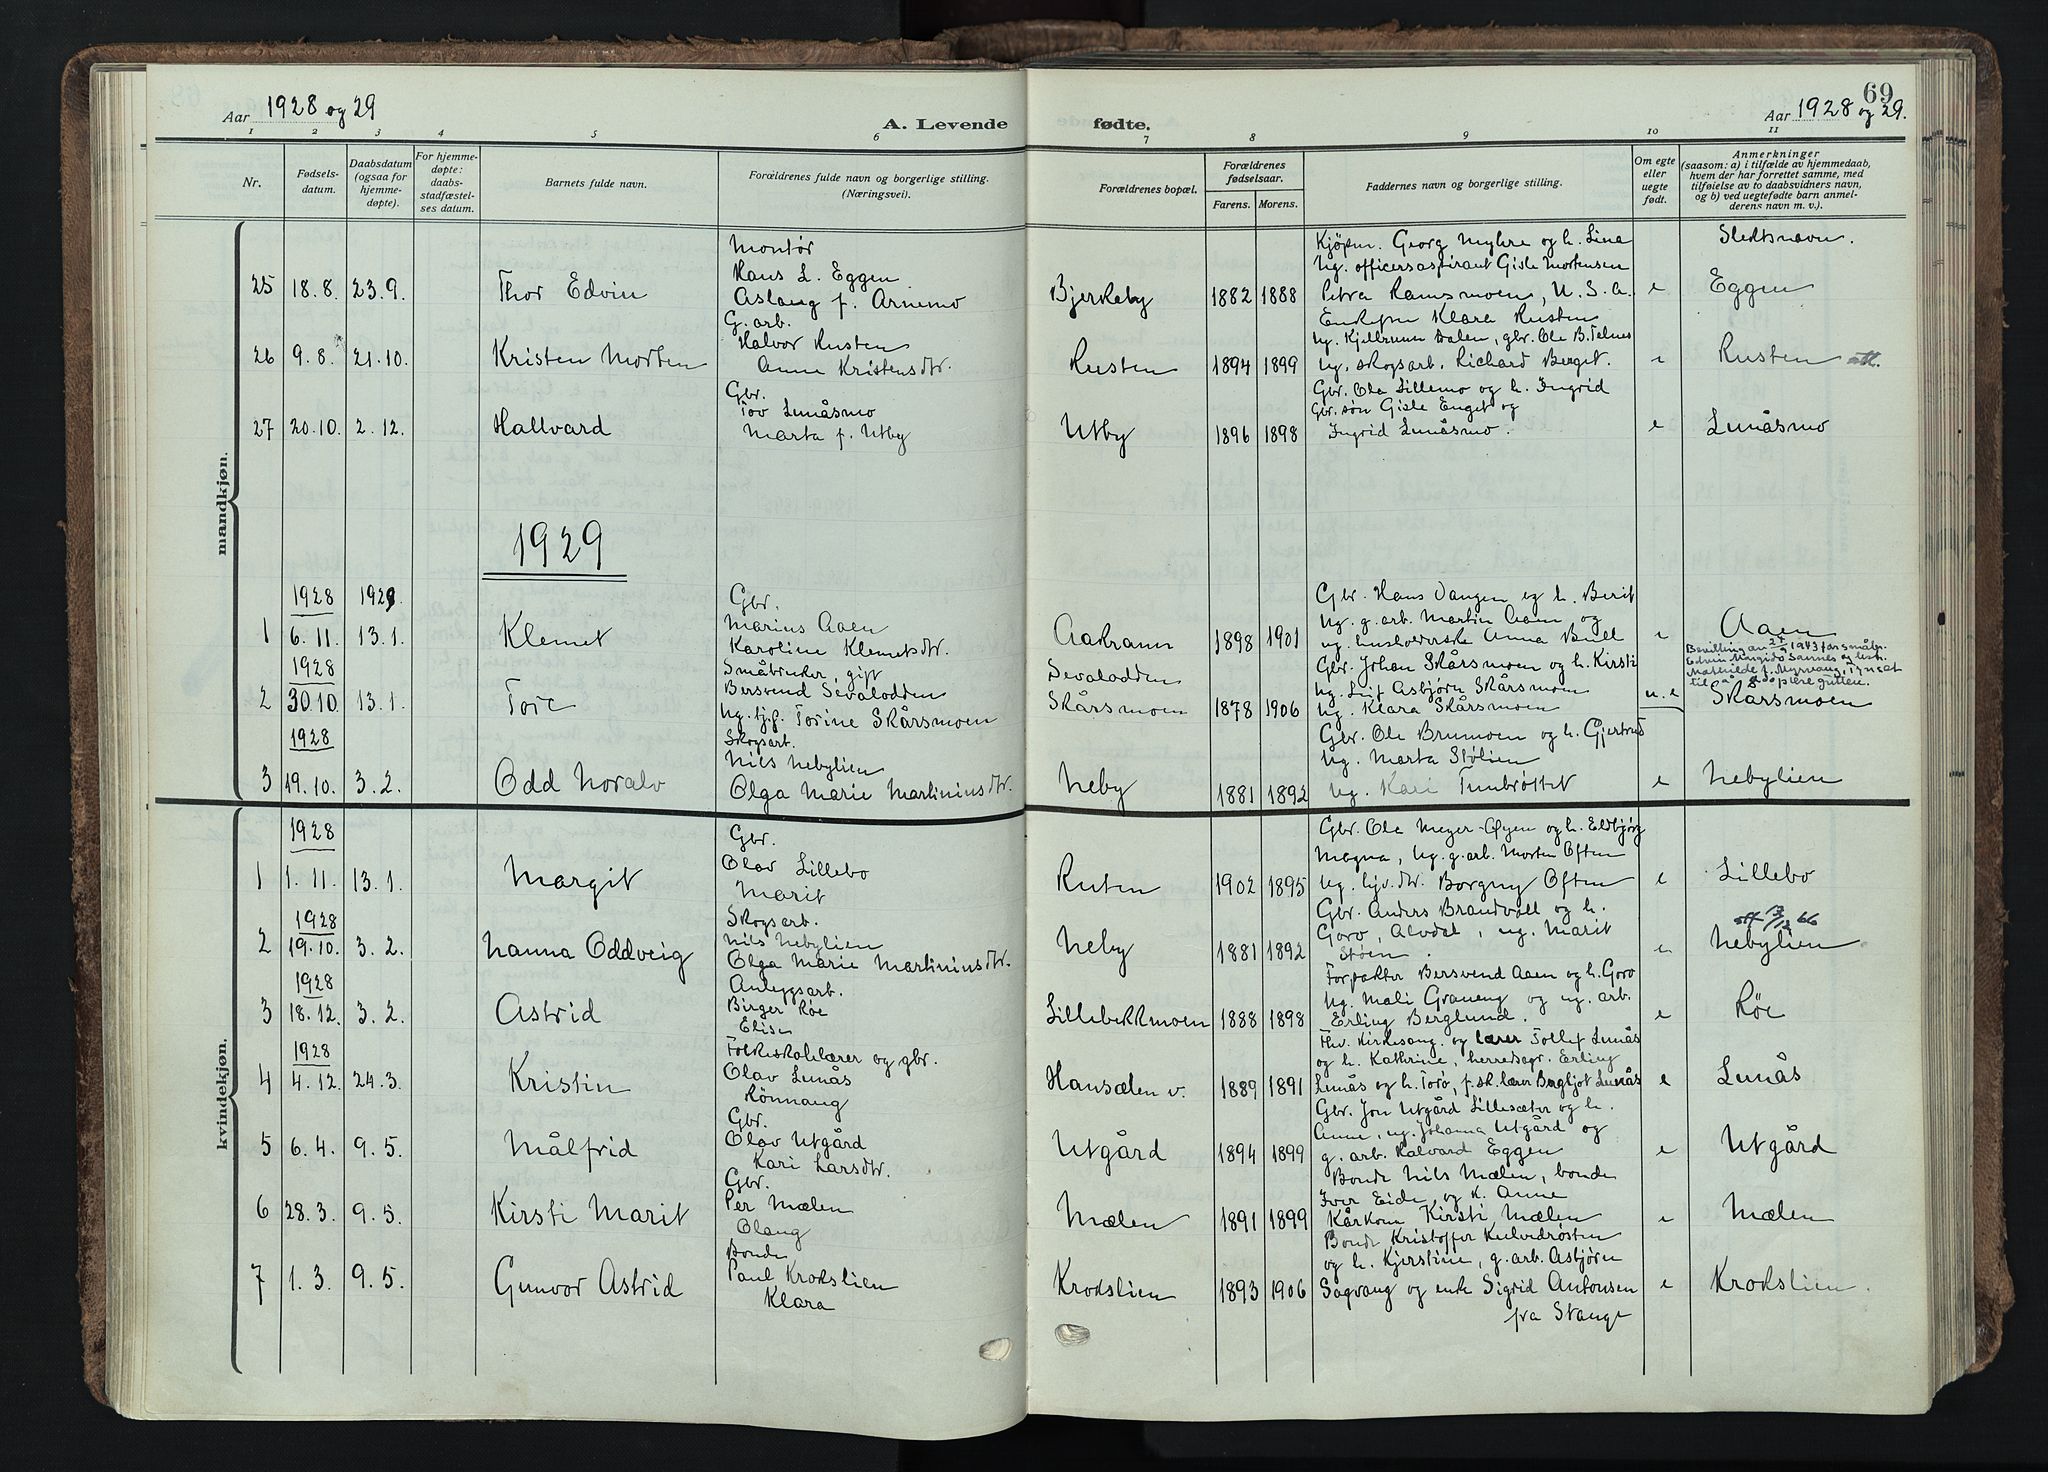 Aar 1928 og 29
A. Levende fødte.
69
Aar 1928 og 29.
1 2 3 4 5 6 7 8 9 10 11
Nr.
Fødsels-
datum.
Daabsdatum
(ogsaa for
hjemme-
døpte).
For hjemme-
døpte:
daabs-
stadfæstel-
ses datum.
Barnets fulde navn.
Forældrenes fulde navn og borgerlige stilling.
(Næringsvei).
Forældrenes bopæl.
Forældrenes
fødselsaar.
Farens. Morens.
Faddernes navn og borgerlige stilling.
Om egte
eller
uegte
født.
Anmerkninger
(saasom: a) i tilfælde av hjemmedaab,
hvem der har forrettet samme, med
tilføielse av to daabsvidners navn,
og b) ved uegtefødte barn anmel-
derens navn m. v.).
mandkjøn.
Montør
Kjøpm. Georg Myhre og h. Lina
Slektsnavn.
Hans L. Eggen
Ug. officersaspirant Gisle Mortensen
25 18.8. 23.9. Thor Edvin Aslaug f. Arnemo Bjerkeby 1882 1888 Petra Ramsmoen, U.S.A. e Eggen
G. arb.
Klara Rusten
Halvor Rusten
Ug. Dalen, gbr. Ole B. Telnes
26 9.8. 21.10. Kristen Morten Anne Kristensdtr. Rusten 1894 1899 ug. skogsarb. Richard Berget. e Rusten
Gbr.
Gbr. Ole Lillemo og h. Ingrid
Tov Lunåsmo
Gbr. søn Gisle Enget og
27 20.10. 2.12. Hallvard Marta f. Utby Utby 1896 1898 Ingrid Lunåsmo. e Lunåsmo
1929
1928 1929.
Gbr.
Gbr. Hans Vangen og h. Berit
Marius Aaen
Ug. g. arb. Martin Aaen og
1 6.11. 13.1. Klemet Karoline Klemetsdtr. Aakrann 1898 1901 ug. Anna Bull e Aaen
1928
Småbruker, gift
Gbr. Johan Skårsmoen og h. Kirsti
Bevilling av 1943 for småbr.
Edvin Sannes og
Mathilde f. Myrvang, Tynset
til å adoptere gutten.
Bersvend Sevalodden
Sevalodden
Ug. Leif Asbjørn Skårsmoen
2 30.10. 13.1. Tore Ug. tj.p. Torine Skårsmoen Skårsmoen 1878 1906 Ug. Klara Skårsmoen u.e Skårsmoen
1928
Skogsarb.
Gbr. Ole Brumoen og h. Gjertrud
Nils Nebylien
Ug. Marta Stølien
3 19.10. 3.2. Odd Noralv Olga Marie Martiniusdtr. Neby 1881 1892 Ug. Kari Tunbrøttet e Nebylien
kvindekjøn.
1928
Gbr.
Gbr. Ole Meyer-Øyen og h. Eldbjørg
Olav Lillebo
Magna, Ug. g. arb. Morten Often
1 1.11. 13.1. Margit Marit Ruten 1902 1895 Ug. Borgny Often e Lillebo
1928
Skogsarb.
Gbr. Anders Brandvoll og h.
Nils Nebylien
Goro, Alvdal, ug. Marit
2 19.10. 3.2. Nanna Oddveig Olga Marie Martiniusdtr. Neby 1881 1892 Støen. e Nebylien
1928
Anleggsarb.
Forpakter Bersvend Aaen og h. Goro
Birger Røe
Ug. Mali Graneng og ug. arb.
3 18.12. 3.2. Astrid Elise Lillebekkmoen 1888 1898 Erling Berglund. e Røe
1928
Folkeskolelærer og gbr.
Fhv. Kirkesang. og lærer Tollef Lunås
Olav Lunås
og h. Kathrine, herredsagr. Erling
4 4.12. 24.3. Kristin Rönnaug Hansælen v. 1889 1891 Lunås og h. Torø, f. sk. lærer Bergljot Lunås e Lunås
Gbr.
Gbr. Jon Utgård Lillesæter og h.
Olav Utgård
Anne, ug. Johanna Utgård og
5 6.4. 9.5. Målfrid Kari Larsdtr. Utgård 1894 1899 g. arb. Halvard Eggen e Utgård
Gbr.
Bonde Nils Mælen, bonde
Per Mælen
Iver Eide, og h. Anne
6 28.3. 9.5. Kirsti Marit Olaug Mælen 1891 1899 Kårkona Kirsti Mælen e Mælen
Bonde
Bonde Kristoffer Kulvedrøsten
Paul Krokslien
og h. Kjerstine, g. arb. Asbjørn
7 1.3. 9.5. Gunvor Astrid Klara Krokslien 1893 1906 Sagvang og enke Sigrid Antonsen e Krokslien.
fra Stange